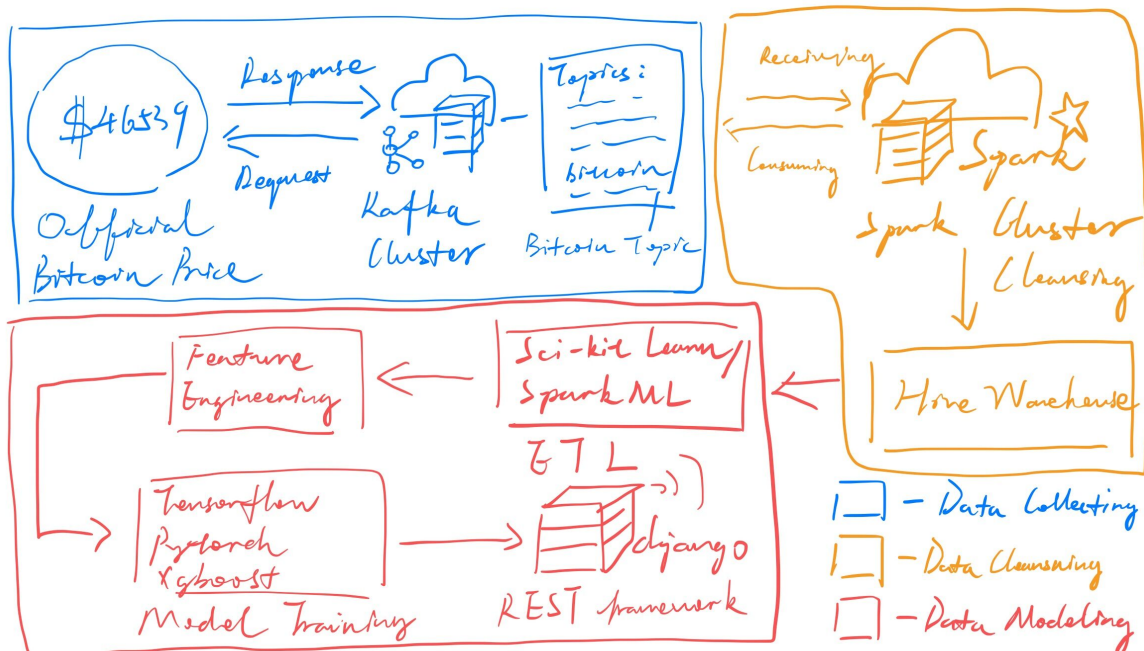 $46539
Official
Bitcoin Price
Response
Request
Kafka
Cluster
Topics:
bitcoin
Bitcoin Topic
Receiving
Consuming
Spark
Spark Cluster
Cleansing
Hive Warehouse
Sci-kit Learn/
Spark ML
ETL
Feature
Engineering
Tensorflow
Pytorch
Xgboost
Model Training
django
REST framework
- Data Collecting
- Data Cleansning
- Data Modeling